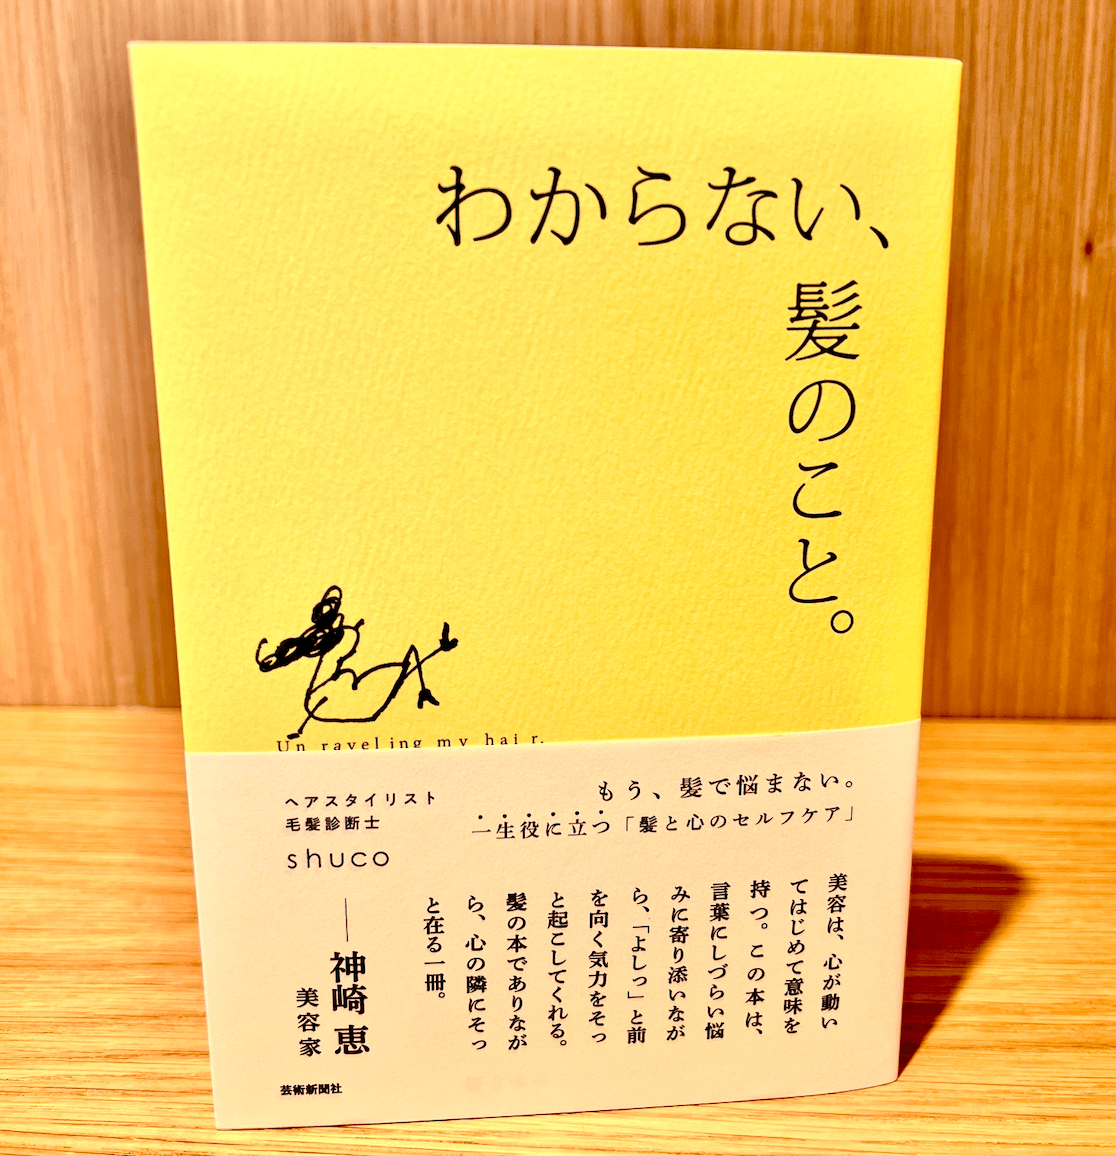 わからない、
髪のこと。
Un raveling my hair.
もう、髪で悩まない。
一生役に立つ「髪と心のセルフケア」
ヘアスタイリスト
毛髪診断士
shuco
美容は、心が動い
てはじめて意味を
持つ。この本は、
言葉にしづらい悩
みに寄り添いなが
ら、「よしっ」と前
を向く気力をそっ
と起こしてくれる。
髪の本でありなが
ら、心の隣にそっ
と在る一冊。
──神崎 恵
美容家
芸術新聞社